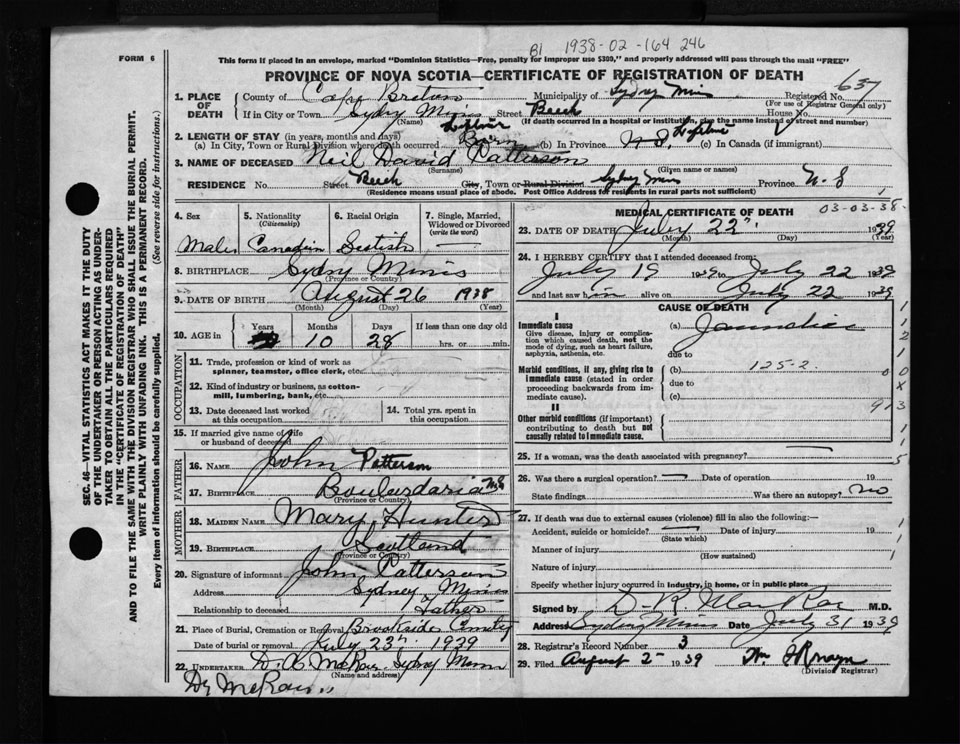 B1 1938-02-164 246
FORM 6
This form if placed in an envelope, marked "Dominion Statistics—Free, penalty for improper use $300," and properly addressed will pass through the mail "FREE"
PROVINCE OF NOVA SCOTIA—CERTIFICATE OF REGISTRATION OF DEATH
637
1. PLACE OF DEATH
County of Cape Breton Municipality of Sydney Mines Registered No.
(For use of Registrar General only)
If in City or Town Sydney Mines Street Beech House No.
(Name) (If death occurred in a hospital or institution, give the name instead of street and number)
2. LENGTH OF STAY (in years, months and days)
(a) In City, Town or Rural Division where death occurred Lifetime (b) In Province N.S. Lifetime (c) In Canada (if immigrant)
3. NAME OF DECEASED Neil David Patterson
(Surname) (Given name or names)
RESIDENCE No. Street Beech City, Town or Rural Division Sydney Mines Province N.S
(Residence means usual place of abode. Post Office Address for residents in rural parts not sufficient)
4. Sex
5. Nationality (Citizenship)
6. Racial Origin
7. Single, Married, Widowed or Divorced (write the word)
Male Canadian Scotish —
8. BIRTHPLACE Sydney Mines
(Province or Country)
9. DATE OF BIRTH August 26 1938
(Month) (Day) (Year)
10. AGE in
Years Months Days If less than one day old
10 28 hrs. or min.
OCCUPATION
11. Trade, profession or kind of work as spinner, teamster, office clerk, etc.
12. Kind of industry or business, as cotton-mill, lumbering, bank, etc.
13. Date deceased last worked at this occupation
14. Total yrs. spent in this occupation
15. If married give name of wife or husband of deceased
FATHER
16. NAME John Patterson
17. Birthplace Boulardarie N.S
(Province or Country)
MOTHER
18. MAIDEN NAME Mary Hunter
19. Birthplace Scotland
(Province or Country)
20. Signature of informant John Patterson
Address Sydney Mines
Relationship to deceased Father
21. Place of Burial, Cremation or Removal Brookside Cmetry
Date of burial or removal July 23rd 1939
22. UNDERTAKER D. A. McRae Sydney Mines
(Name and address)
MEDICAL CERTIFICATE OF DEATH
03-03-38-
23. DATE OF DEATH July 22nd 1939
(Month) (Day) (Year)
24. I HEREBY CERTIFY that I attended deceased from:
July 19 1939 to July 22 1939
and last saw him alive on July 22 1939
CAUSE OF DEATH
I
Immediate cause (a) Jaundice
Give disease, injury or complication which caused death, not the mode of dying, such as heart failure, asphyxia, asthenia, etc.
due to
Morbid conditions, if any, giving rise to immediate cause (stated in order proceeding backwards from immediate cause).
(b) 125-2.
due to
(c)
II
Other morbid conditions (if important) contributing to death but not causally related to immediate cause.
25. If a woman, was the death associated with pregnancy?
26. Was there a surgical operation? — Date of operation 19
State findings Was there an autopsy? no
27. If death was due to external causes (violence) fill in also the following:—
Accident, suicide or homicide? — Date of injury 19
(State which)
Manner of injury
(How sustained)
Nature of injury
Specify whether injury occurred in industry, in home, or in public place
Signed by D. R. MacRae M.D.
Address Sydney Mines Date July 31 1939
28. Registrar's Record Number 3
29. Filed August 2 1939
(Division Registrar)
SEC. 46—VITAL STATISTICS ACT MAKES IT THE DUTY
OF THE UNDERTAKER OR PERSON ACTING AS UNDER-
TAKER TO OBTAIN ALL THE PARTICULARS REQUIRED
IN THE "CERTIFICATE OF REGISTRATION OF DEATH"
AND TO FILE THE SAME WITH THE DIVISION REGISTRAR WHO SHALL ISSUE THE BURIAL PERMIT.
WRITE PLAINLY WITH UNFADING INK. THIS IS A PERMANENT RECORD.
Every item of information should be carefully supplied. (See reverse side for instructions.)